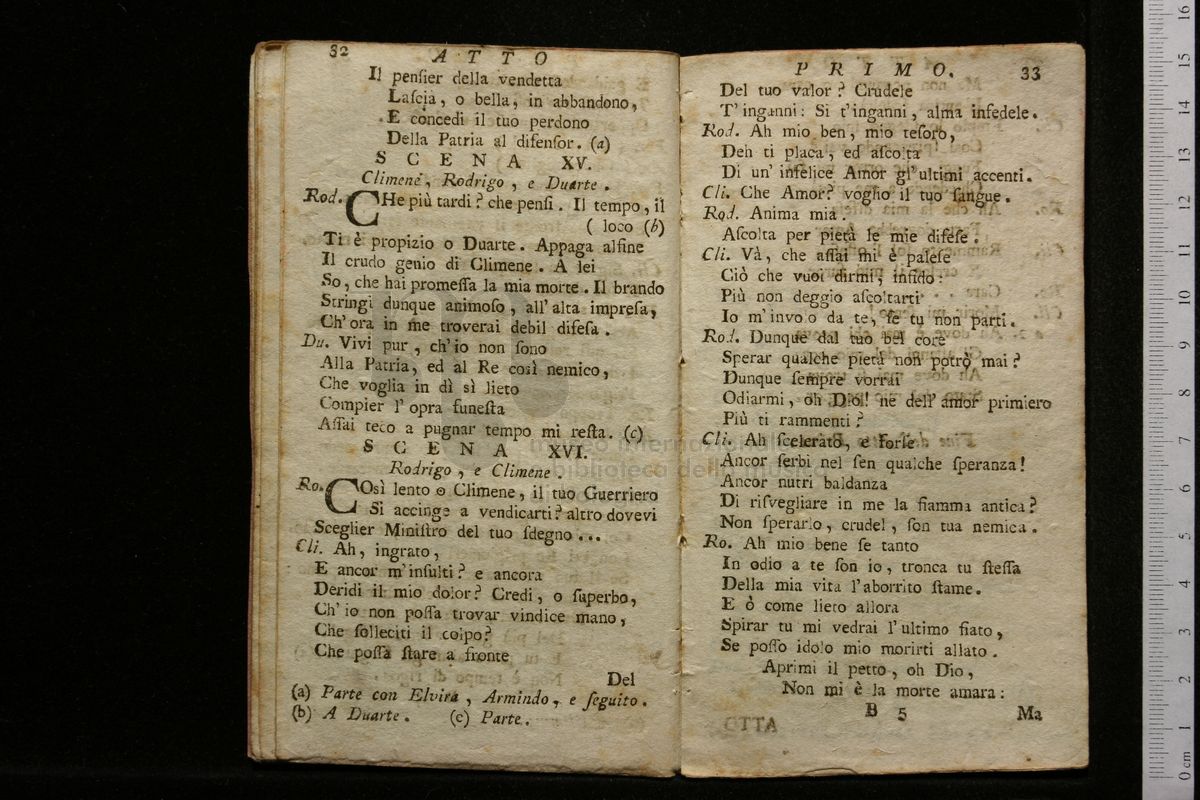 32
A T T O
Il penſier della vendetta
Laſcia, o bella, in abbandono,
E concedi il tuo perdono
Della Patria al difenſor. (a)
S C E N A XV.
Climene, Rodrigo, e Duarte.
Rod. CHe più tardi? che penſi. Il tempo, il
( loco (b)
Ti è propizio o Duarte. Appaga alfine
Il crudo genio di Climene. A lei
So, che hai promeſſa la mia morte. Il brando
Stringi dunque animoſo, all' alta impreſa,
Ch' ora in me troverai debil difeſa.
Du. Vivi pur, ch' io non ſono
Alla Patria, ed al Re così nemico,
Che voglia in dì sì lieto
Compier l' opra funeſta
Aſſai teco a pugnar tempo mi reſta. (c)
S C E N A XVI.
Rodrigo, e Climene.
Ro. COsì lento o Climene, il tuo Guerriero
Si accinge a vendicarti? altro dovevi
Sceglier Miniſtro del tuo ſdegno...
Cli. Ah, ingrato,
E ancor m' inſulti? e ancora
Deridi il mio dolor? Credi, o ſuperbo,
Ch' io non poſſa trovar vindice mano,
Che ſolleciti il colpo?
Che poſſa ſtare a fronte
Del
(a) Parte con Elvira, Armindo, e ſeguito.
(b) A Duarte. (c) Parte.
P R I M O. 33
Del tuo valor? Crudele
T' inganni: Si t' inganni, alma infedele.
Rod. Ah mio ben, mio teſoro,
Deh ti placa, ed aſcolta
Di un' infelice Amor gl' ultimi accenti.
Cli. Che Amor? voglio il tuo ſangue.
Rod. Anima mia:
Aſcolta per pietà le mie difeſe.
Cli. Và, che aſſai mi è paleſe
Ciò che vuoi dirmi, infido:
Più non deggio aſcoltarti
Io m' involo da te, ſe tu non parti.
Rod. Dunque dal tuo bel core
Sperar qualche pietà non potrò mai?
Dunque ſempre vorrai
Odiarmi, oh Dio! nè dell' amor primiero
Più ti rammenti?
Cli. Ah ſcelerato, e forſe
Ancor ſerbi nel ſen qualche ſperanza!
Ancor nutri baldanza
Di riſvegliare in me la fiamma antica?
Non ſperarlo, crudel, ſon tua nemica.
Ro. Ah mio bene ſe tanto
In odio a te ſon io, tronca tu ſteſſa
Della mia vita l' aborrito ſtame.
E ò come lieto allora
Spirar tu mi vedrai l' ultimo fiato,
Se poſſo idolo mio morirti allato.
Aprimi il petto, oh Dio,
Non mi è la morte amara:
B 5 Ma
museo internazionale
biblioteca della musica
0 cm 1 2 3 4 5 6 7 8 9 10 11 12 13 14 15 16